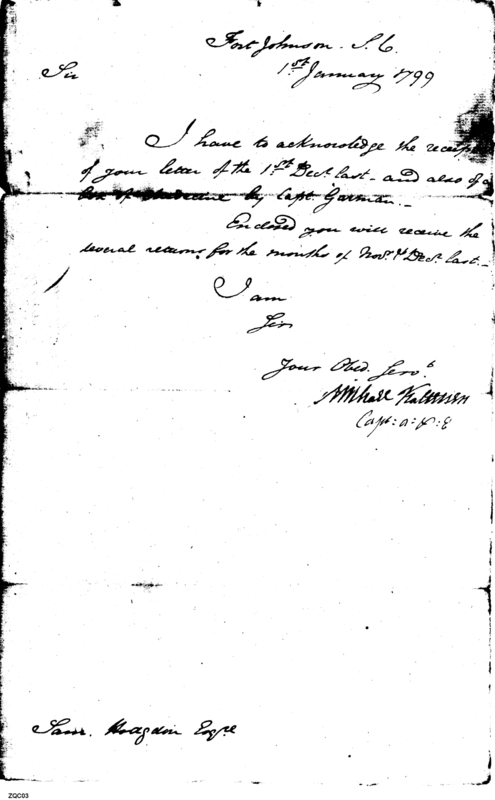 Fort Johnson. S. C.
1.st January 1799
Sir
I have to acknowledge the receipt
of your letter of the 1.st Dec.r last. and also of a
box of Medicine by Capt. Garman. _
Enclosed you will receive the
several returns for the months of Nov.r & Dec.r last. _
I am
Sir
Your Obed. Serv.t
Michael Kalteisen
Capt: a: & : E
Saml. Hodgdon Esqre
ZQC03